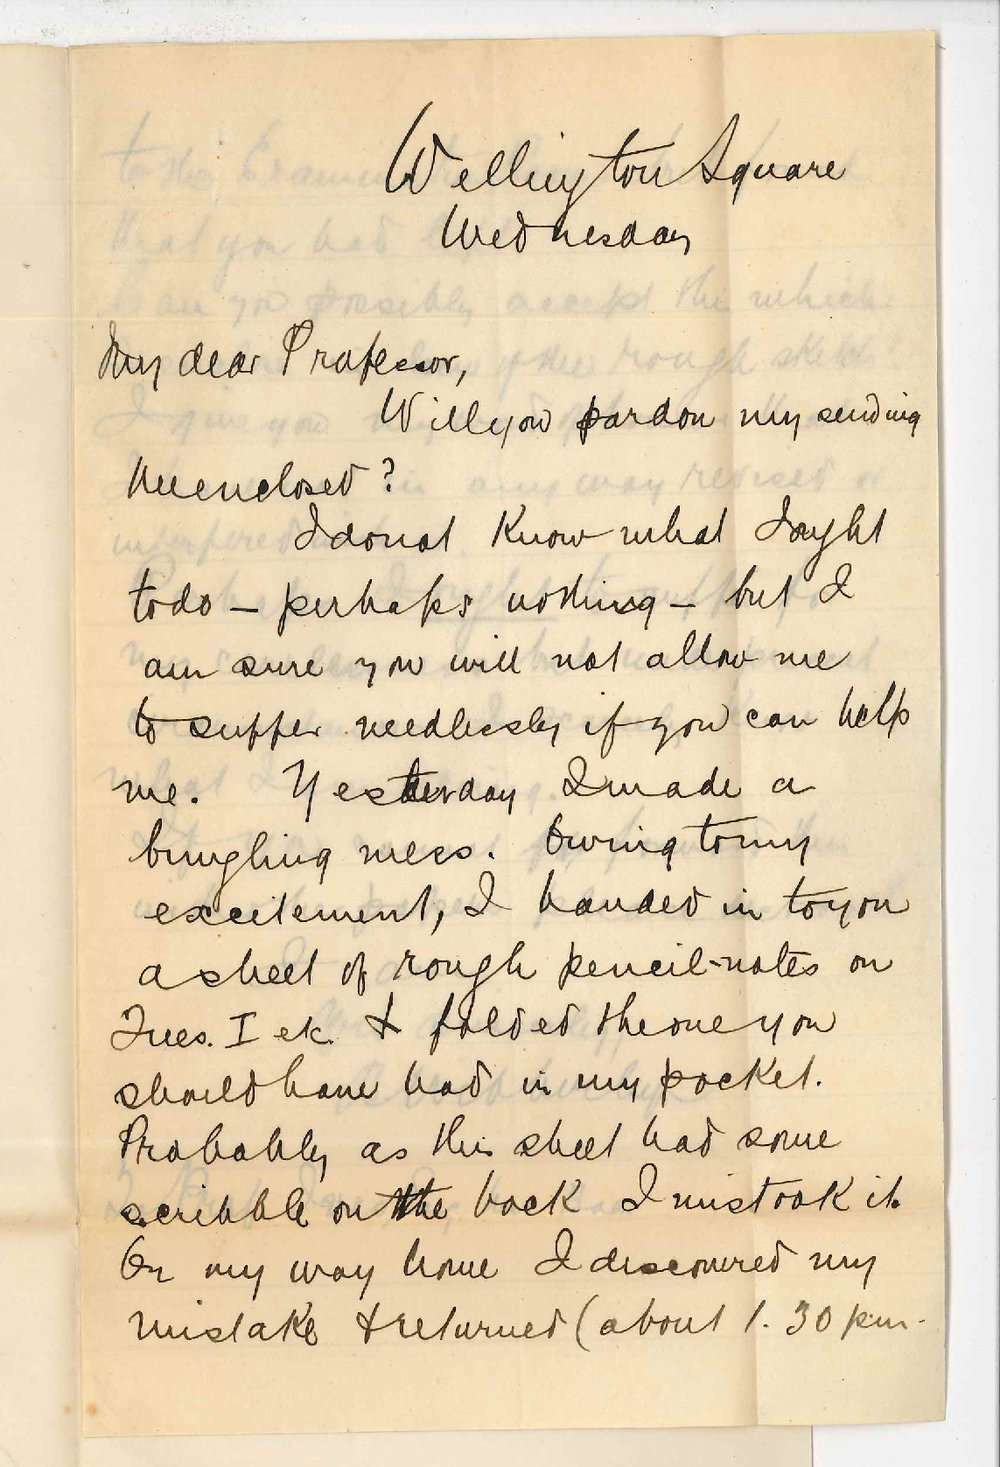 Wellington Square
Wednesday
My dear Professor,
Will you pardon my sending
the enclosed?
I do not know what I ought
to do — perhaps nothing — but I
am sure you will not allow me
to suffer needlessly if you can help
me. Yesterday I made a
bungling mess. Owing to my
excitement, I handed in to you
a sheet of rough pencil-notes on
Tues. I etc. & folded the one you
should have had in my pocket.
Probably as this sheet had some
scribble on the back I mistook it.
On my way home I discovered my
mistake & returned (about 1.30 pm.